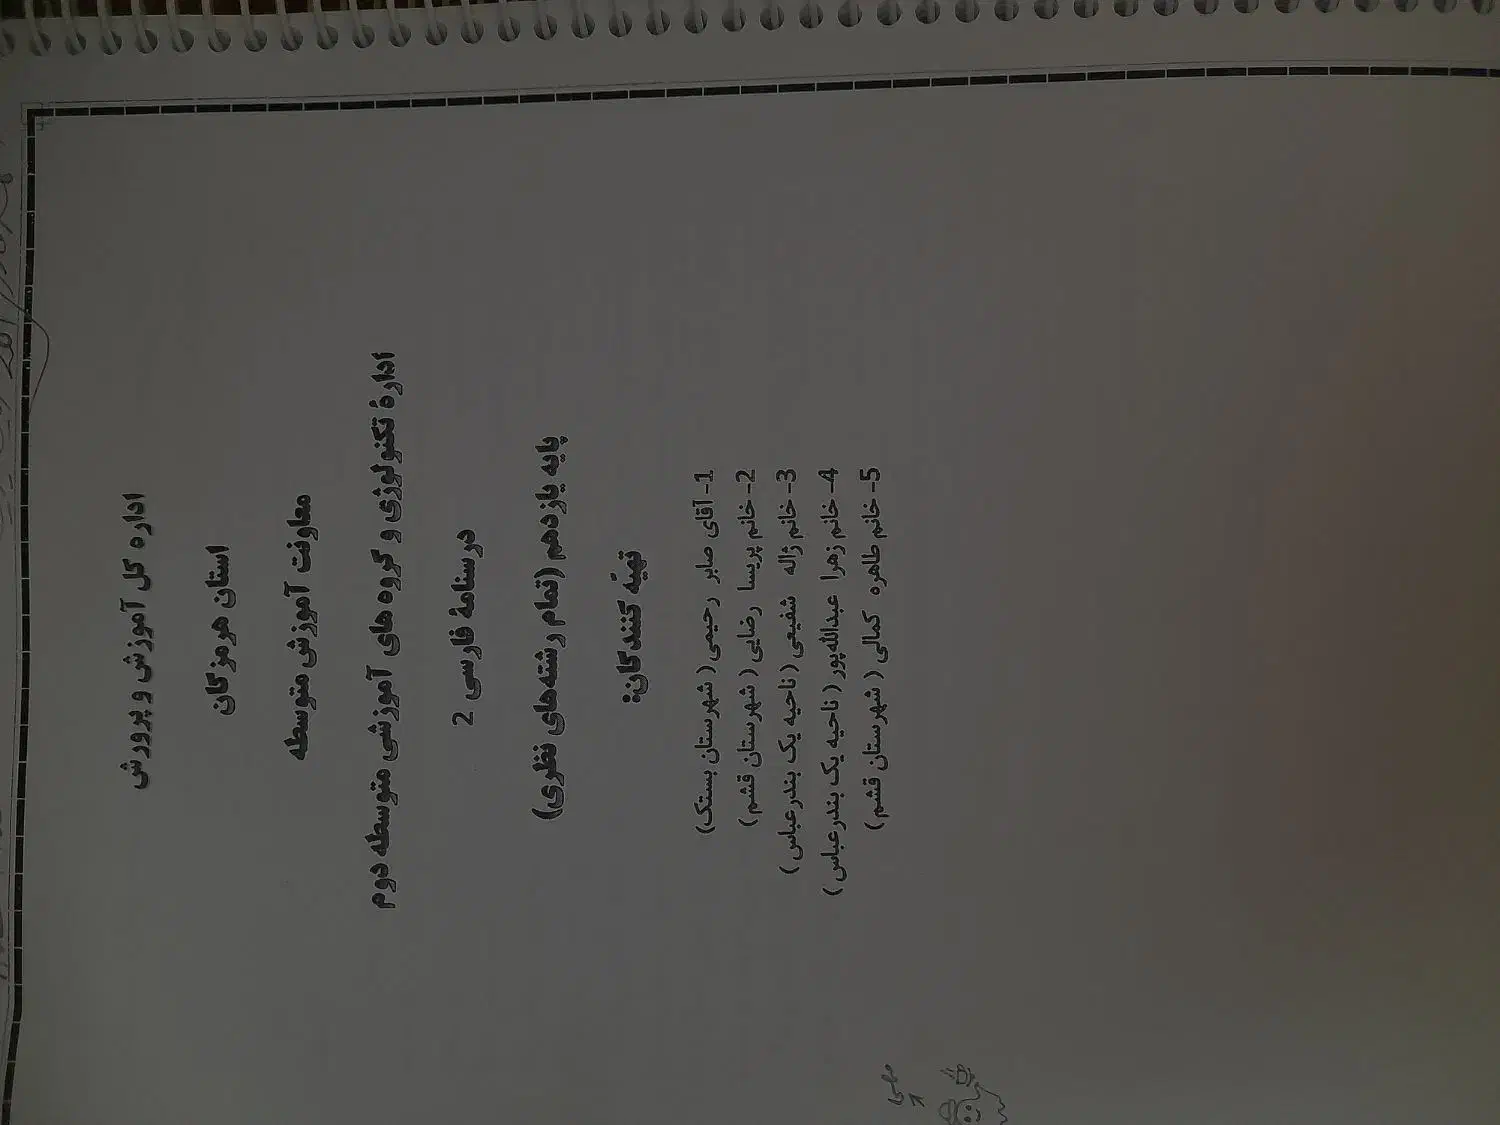 اداره کل آموزش و پرورش
استان هرمزگان
معاونت آموزش متوسطه
ادارهٔ تکنولوژی و گروه های آموزشی متوسطه دوم
درسنامهٔ فارسی 2
پایه یازدهم (تمام رشته‌های نظری)
تهیّه کنندگان:
1- آقای صابر رحیمی ( شهرستان بستک)
2- خانم پریسا رضایی ( شهرستان قشم )
3- خانم ژاله شفیعی ( ناحیه یک بندرعباس )
4- خانم زهرا عبدالله‌پور ( ناحیه یک بندرعباس )
5- خانم طاهره کمالی ( شهرستان قشم )